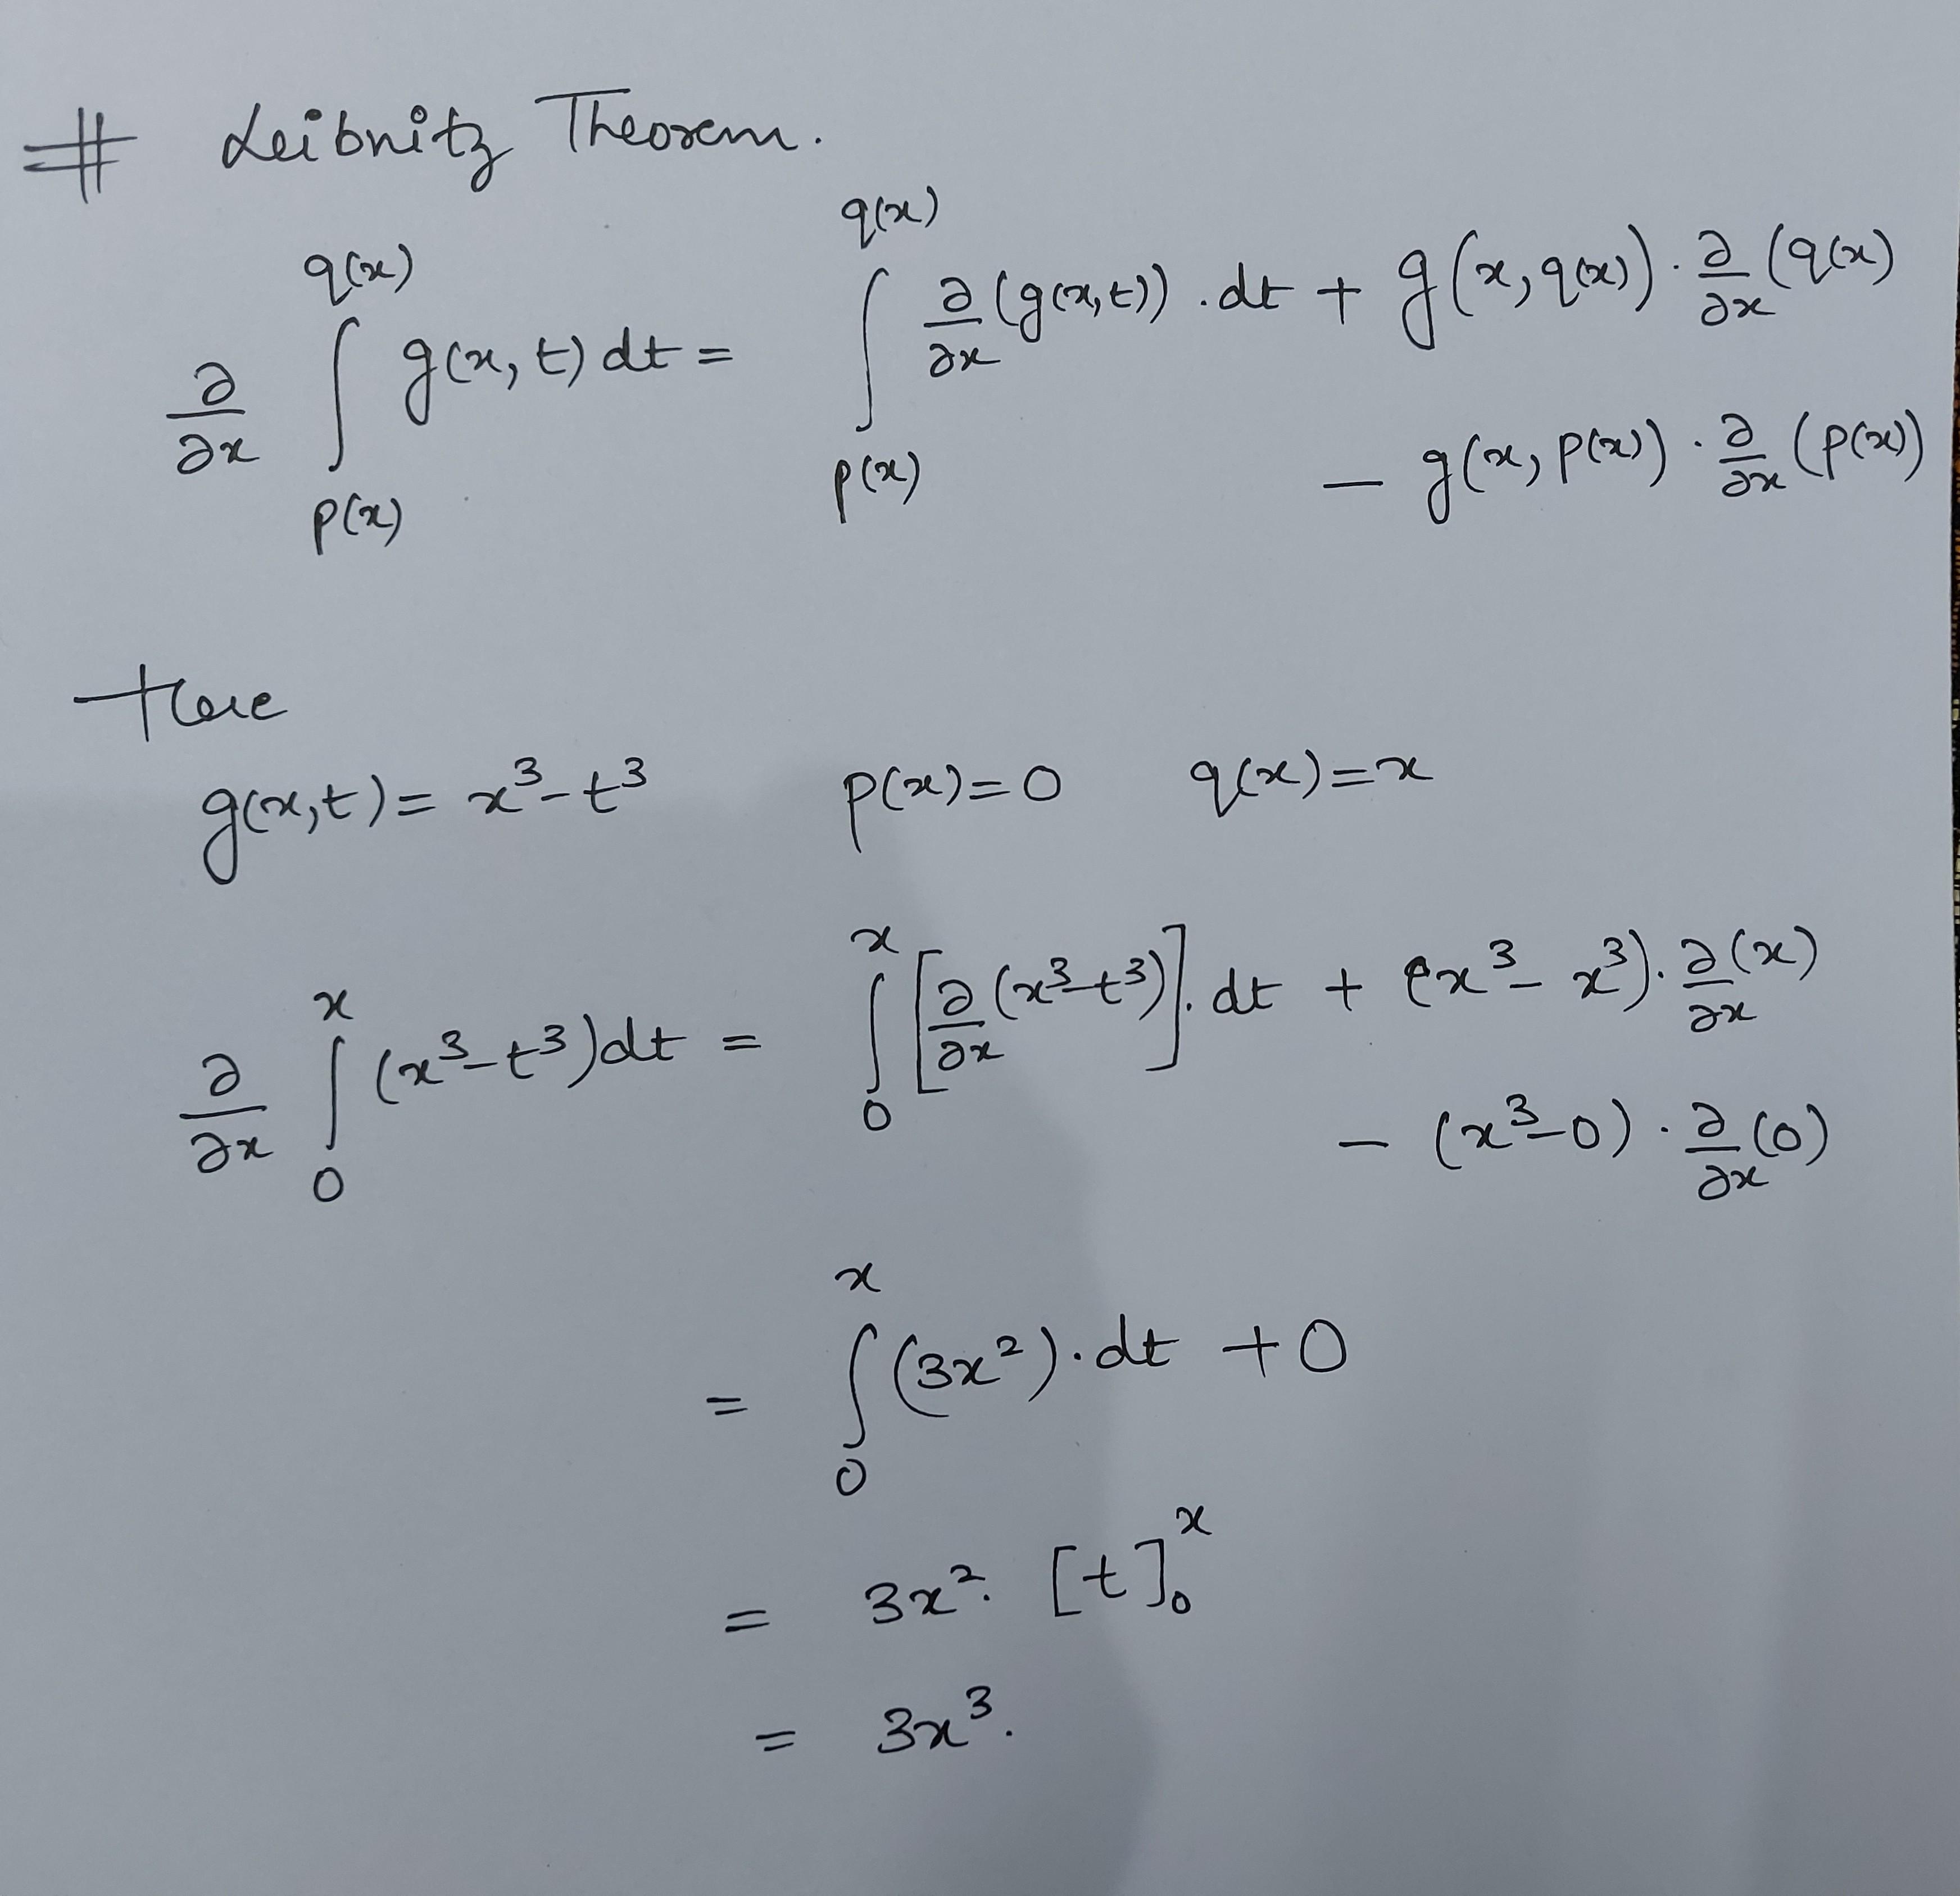 # Leibnitz Theorem.
∂/∂x ∫_{p(x)}^{q(x)} g(x,t) dt = ∫_{p(x)}^{q(x)} ∂/∂x (g(x,t)) . dt + g(x, q(x)) . ∂/∂x (q(x)
− g(x, p(x)) . ∂/∂x (p(x))
Here
g(x,t) = x³ − t³ p(x) = 0 q(x) = x
∂/∂x ∫_0^x (x³ − t³) dt = ∫_0^x [∂/∂x (x³ − t³)] . dt + (x³ − x³) . ∂/∂x (x)
− (x³ − 0) . ∂/∂x (0)
= ∫_0^x (3x²) . dt + 0
= 3x² . [t]_0^x
= 3x³.